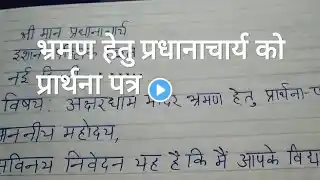 श्री मान प्रधानाचार्य
भ्रमण हेतु प्रधानाचार्य को
प्रार्थना पत्र
नई
विषय: अक्षरधाम मन्दिर भ्रमण हेतु प्रार्थना-प
माननीय महोदय,
सविनय निवेदन यह है कि मैं आपके विद्य